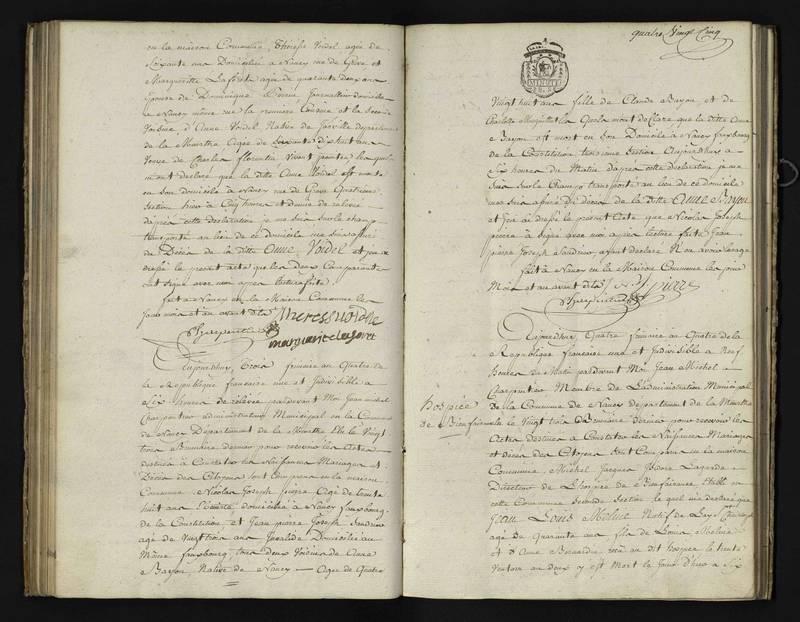 en la maison Commune, Thérèse Voidel agée de
Soixante ans Domiciliée à Nancy rue de Grève et
Marguerite Laforêt agée de quarante deux ans
Epouse de Dominique Journallier domiciliée
à Nancy même rue la première Cousine et la Seconde
Voisine d'Anne Voidel Native de Joinville departement
de la Meurthe Agée de Soixante dix huit ans
Veuve de Charles florentin Vivant lesquelles
m'ont declaré que la ditte Anne Voidel est morte
en son domicile à Nancy rue de Grève Quatrieme
Section hier à Cinq heures et demie de relevée
d'après cette déclaration je me suis sur le champ
transporté au lieu de ce domicile me suis assuré
du Décès de la ditte Anne Voidel et j'en ai
dressé le present acte que les deux Comparantes
ont signé avec moi apres lecture faite.
fait à Nancy en la Maison Commune les
Jour mois et an avant dits
Charpentier Therese voidelle
marguerite laforet
Aujourd'huy Trois frimaire an Quatre de
la République française une et Indivisible à
Six heures de relevée pardevant Moi Jean michel
Charpentier administrateur Municipal en la Commune
de Nancy Departement de la Meurthe Elu le Vingt
trois Brumaire dernier pour recevoir les Actes
destinés à Constater les Naissances Mariages et
Décès des Citoyens sont Comparus en la maison
Commune, Nicolas Joseph pierre Agé de trente
huit ans domicilié à Nancy fauxbourg
de la Constitution et Jean pierre Joseph
agé de Vingt trois ans Invalide Domicilié au
Même fauxbourg, tous deux Voisins de Anne
Bayon, Native de Nancy — Agée de Quatre
quatre Vingt Cinq
Vingt huit ans fille de Claude Bayon et de
Charlotte Lesquels m'ont declaré que la Ditte Anne
Bayon est mort en Son Domicile à Nancy fauxbourg
de la Constitution troisieme Section Aujourd'huy à
Six heures du Matin d'apres cette déclaration je me
suis sur le Champ transporté au lieu de ce domicile
me suis assuré du Décès de la ditte Anne Bayon
et j'en ai dressé le présent Acte que Nicolas Joseph
pierre à signé avec moi après lecture faite Jean
pierre Joseph ayant déclaré N'en avoir l'usage
fait à Nancy en la Maison Commune les jour
Mois et an avant dits N J pierre
Charpentier
Aujourd'huy Quatre frimaire an Quatre de la
République française une et Indivisible à Neuf
heures du Matin pardevant Moi Jean Michel
Charpentier Membre de L'administration Municipale
hospice de la Commune de Nancy departement de la Meurthe
de Bienfaisance le Vingt trois Brumaire dernier pour recevoir les
Actes destinés à Constater les Naissances Mariages
et décès des Citoyens Est Comparu en la maison
Commune Michel Jacques Lagarde
Directeur de L'hospice de Bienfaisance Etabli en
cette Commune Seconde Section le quel m'a déclaré que
Jean Louis Moline Natif de
agé de Quarante ans fils de Louis Moline
et d'Anne entré au dit hospice le trente
an deux y est Mort le Jour d'hier à Six